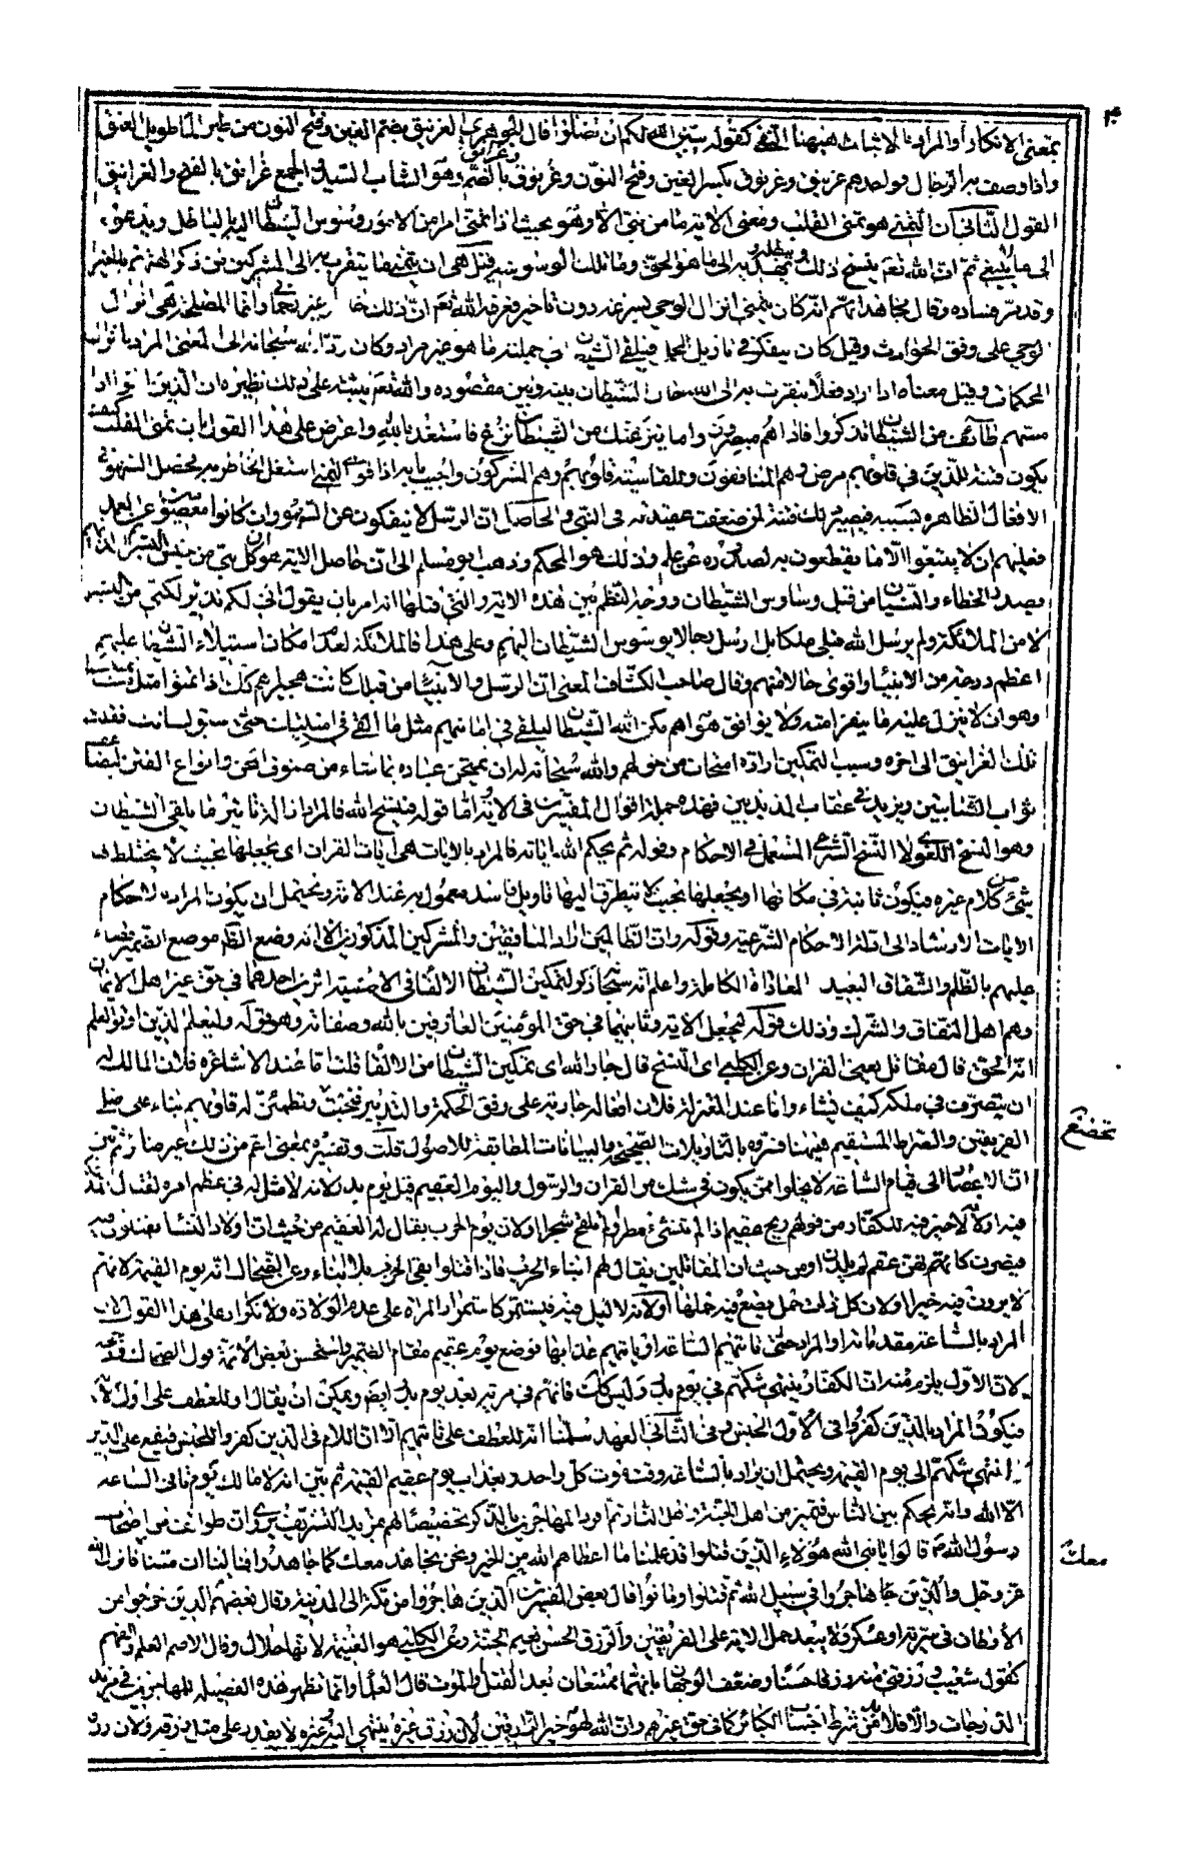 بمعنى الانكار أو المراد بالاثبات ههنا النفى كقوله يبين الله لكم ان تضلوا قال الجوهرى الغرنيق بضم الغين وفتح النون من طير الماء طويل العنق
واذا وصف به الرجال فواحدهم غرنيق وغرنوق بكسر الغين وفتح النون وغرنوق بالضم وغرانق وهو الشاب السيد والجمع غرانق بالفتح والغرانيق
القول الثانى أن التمنى هو تمنى القلب ومعنى الاية ما من نبى الا وهو بحيث اذا تمنى امرا من الامور وسوس الشيطان اليه بالباطل ويدعوه
الى ما لا ينبغى ثم ان الله تعالى ينسخ ذلك ويبطله ويهديه الى ما هو الحق وما تلك الوسوسة قيل هى ان يتمنى ما يتقرب به الى المشركين من ذكر الهتهم بالخير
وقد مر فساده وقال مجاهد انه كان يتمنى انزال الوحى بسرعة دون تأخير فعرفه الله تعالى ان ذلك خا غير وانما المصلحة هى انزال
الوحى على وفق الحوادث وقيل كان يتفكر فى تاويل المجمل فيلقى الشيطان فى جملته ما هو غير مراد وكان رده الله سبحانه الى المعنى المراد بانزال
المحكمات وقيل معناه اذا اراد فعلا يتقرب به الى الله حال الشيطان بينه وبين مقصوده والله تعالى يثبته على ذلك نظيره ان الذين اتقوا اذا
مسهم طائف من الشيطان تذكروا فاذا هم مبصرون واما ينزغنك من الشيطان نزغ فاستعذ بالله واعترض على هذا القول بان تمنى القلب كيف
يكون فتنة للذين فى قلوبهم مرض وهم المنافقون وللقاسية قلوبهم وهم المشركون واجيب بانه اذا قوى التمنى اشتغل الخاطر به فحصل السهو فى
الافعال الظاهرة بسببه فيصير ذلك فتنة لمن ضعفت عقيدته فى النبى والحاصل ان الرسل لا ينفكون عن السهو وان كانوا معصومين عن العمد
فعليهم ان لا يتبعوا الا ما يقطعون به لصدوره عن علم وذلك هو المحكم وذهب ابو مسلم الى ان حاصل الاية هو ان كل نبى من جنس البشر الذين
يصدر الخطاء والنسيان من قبل وساوس الشيطان ووجه النظم بين هذه الاية والتى قبلها انه امر بان يقول انى لكم نذير لكنى من البشر
لا من الملائكة ولم يرسل الله قبلى ملكا بل ارسل رجالا يوسوس الشيطان اليهم وعلى هذا فالملائكة لعدم امكان استيلاء الشيطان عليهم
اعظم درجة من الانبياء واقوى حالا منهم وقال صاحب الكشاف المعنى ان الرسل والانبياء من قبلك كانت هجيراهم كذلك اذا تمنوا مثل ما تمنيت
وهو ان لا ينزل عليه ما ينفر امته ولا يوافق هواهم مكن الله الشيطان ليلقى فى امانيهم مثل ما القى فى امنيتك حتى سبق لسانك فقلت
تلك الغرانيق الى اخره وسبب التمكين ارادة امتحان من حولهم والله سبحانه له ان يمتحن عباده بما شاء من صنوف المحن وانواع الفتن ليضاعف
ثواب الثابتين ويزيد فى عقاب المذبذبين فهذه جملة اقوال المفسرين فى الاية اما قوله فينسخ الله فالمراد ازالة تاثير ما يلقى الشيطان
وهو النسخ اللغوى لا النسخ الشرعى المستعمل فى الاحكام وقوله ثم يحكم الله اياته فالمراد بالايات هى ايات القران اى يجعلها بحيث لا يختلط به
شئ من كلام غيره فيكون ثابتة فى مكانها او يجعلها بحيث لا يتطرق اليها تاويل فاسد معمول به عند الامة ويحتمل ان يكون المراد باحكام
الايات الارشاد الى ادلة الاحكام الشرعية وقوله وان الظالمين اراد المنافقين والمشركين المذكورين الا انه وضع الظاهر موضع الضمير قضاء
عليهم بالظلم والشقاق البعيد المعاداة الكاملة واعلم انه سبحانه ذكر لتمكين الشيطان من الالقاء فى الامنية اثرين احدهما فى حق غير اهل الايمان
وهم اهل النفاق والشرك وذلك قوله ليجعل الاية وثانيهما فى حق المؤمنين العارفين بالله وصفاته وهو قوله وليعلم الذين اوتوا العلم
انه الحق قال مقاتل يعنى القران وعن الكلبى اى النسخ قال جار الله اى تمكين الشيطان من الالقاء قلت اما عند الاشاعرة فلان المالك له
ان يتصرف فى ملكه كيف يشاء واما عند المعتزلة فلان افعاله جارية على وفق الحكمة والتدبير فتخبت وتطمئن له قلوبهم بناء على
الفريقين والصراط المستقيم فيهما فسروه بالتاويلات الصحيحة والبيانات المطابقة للاصول قلت وتفسيره بمعنى اعم من ذلك غير ضائر ثم بين
ان الاعصار الى قيام الساعة لا يخلو ممن يكون فى شك من القران والرسول واليوم العقيم قيل يوم بدر لانه لا مثل له فى عظم امره لقتال الملائكة
فيه او لانه لا خير فيه للكفار من قولهم ريح عقيم اذا لم تنشئ مطرا ولم تلقح شجرا او لان يوم الحرب يقال له العقيم من حيث ان اولاد النساء يقتلون فيه
فيصرن كانهن عقم لم يلدن او من حيث ان المقاتلين يقال لهم ابناء الحرب فاذا قتلوا بقى الحرب بلا ابناء وعن الضحاك انه يوم القيمة لانهم
لا يرون فيه خيرا او لان كل ذات حمل يضع فيه حملها او لانه لا ليل فيه فيستمر كاستمرار المراة على عدم الولادة ولا تكرار على هذا القول لان
المراد بالساعة مقدماته او المراد حتى تاتيهم الساعة او ياتيهم عذابها فوضع يوم عقيم مقام الضمير واستحسن بعض الائمة قول الضحاك
لان الاول يلزم منه ان الكفار ينتهى شكهم فى يوم بدر وليس كذلك فانهم فى مرية بعد يوم بدر ايضا ويمكن ان يقال او للعطف على اول الاية
فيكون المراد بالذين كفروا فى الاول الجنس وفى الثانى العهد سلمنا انه للعطف على تاتيهم الا ان اللام فى الذين كفروا للجنس فيقع على الذين
انتهى شكهم الى يوم القيمة ويحتمل ان يراد بالساعة وقت موت كل واحد وبعذاب يوم عقيم القيمة ثم بين انه لا مالك يوم تاتى الساعة
الا الله وانه يحكم بين الناس فيميز من اهل الجنة واهل النار ثم افرد المهاجرين بالذكر تخصيصا لهم بمزيد التشريف يروى ان طوائف من اصحاب
رسول الله صلعم قالوا يا نبى الله هؤلاء الذين قتلوا قد علمنا ما اعطاهم الله من الخير ونحن نجاهد معك كما جاهدوا فما لنا ان متنا فانزل الله
عز وجل والذين هاجروا فى سبيل الله ثم قتلوا وماتوا قال بعض المفسرين الذين هاجروا من مكة الى المدينة وقال بعضهم الذين خرجوا من
الاوطان فى سرية او عسكر ولا يبعد حمل الاية على الفريقين والرزق الحسن نعيم الجنة وعن الكلبى هو الغنيمة لانها حلال وقال الاصم العلم والفهم
كقول شعيب ورزقنى منه رزقا حسنا وضعف الوجهان بانهما ممتنعان بعد القتل والموت قال العلماء وانما تظهر هذه الفضيلة للمهاجرين فى مزيد
الدرجات والا فلا بد من شرط اجتناب الكبائر كما فى حق غيرهم وان الله لهو خير الرازقين لان رزق غيره ينتهى اليه وغيره لا يقدر على مثل رزقه ولان رزق
تخضع
معك